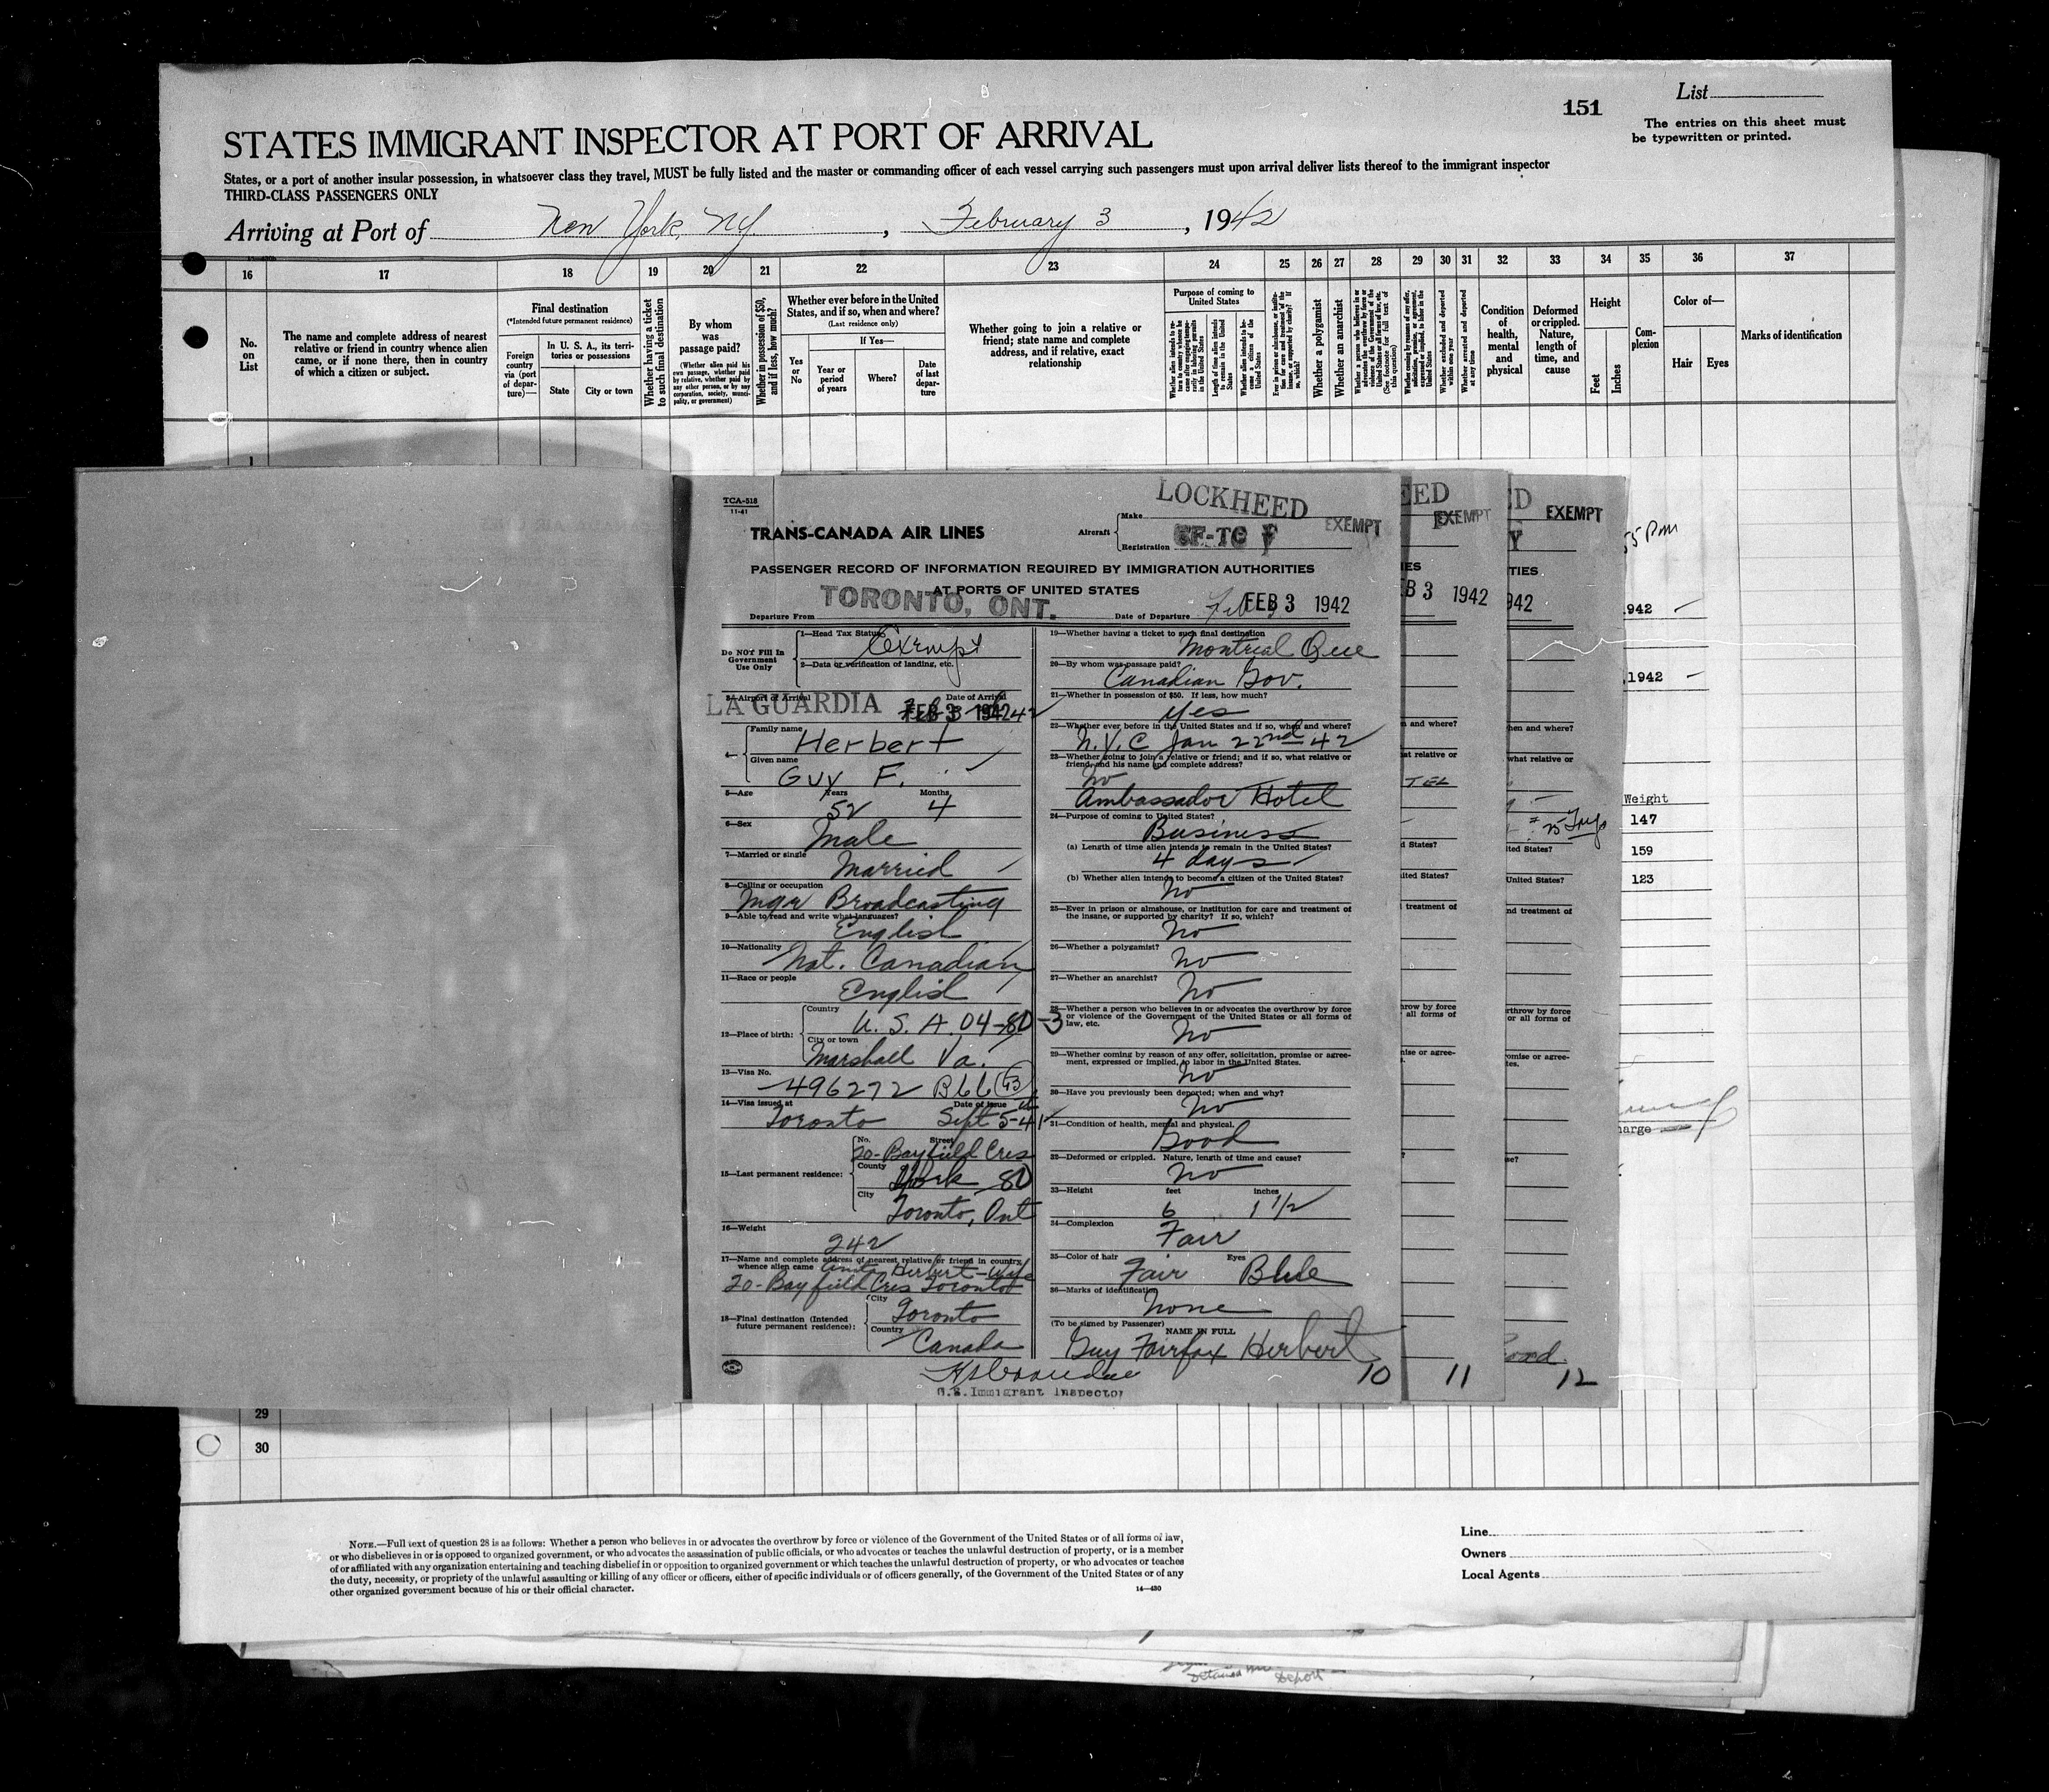 151
List
The entries on this sheet must
be typewritten or printed.
STATES IMMIGRANT INSPECTOR AT PORT OF ARRIVAL
States, or a port of another insular possession, in whatsoever class they travel, MUST be fully listed and the master or commanding officer of each vessel carrying such passengers must upon arrival deliver lists thereof to the immigrant inspector
THIRD-CLASS PASSENGERS ONLY
Arriving at Port of New York, NY, February 3, 1942
16 17 18 19 20 21 22 23 24 25 26 27 28 29 30 31 32 33 34 35 36 37
No. on List
The name and complete address of nearest relative or friend in country whence alien came, or if none there, then in country of which a citizen or subject.
Final destination
(*Intended future permanent residence)
Foreign country via (port of departure)—
In U. S. A., its territories or possessions
State
City or town
Whether having a ticket to such final destination
By whom was passage paid?
(Whether alien paid his own passage, whether paid by relative, whether paid by any other person, or by any corporation, society, municipality, or government)
Whether in possession of $50, and if less, how much?
Whether ever before in the United States, and if so, when and where?
(Last residence only)
If Yes—
Yes or No
Year or period of years
Where?
Date of last departure
Whether going to join a relative or friend; state name and complete address, and if relative, exact relationship
Purpose of coming to United States
Length of time alien intends to remain in the United States
Whether alien intends to become a citizen of the United States
Whether a polygamist
Whether an anarchist
Whether excluded and deported within one year
Whether arrested and deported at any time
Condition of health, mental and physical
Deformed or crippled. Nature, length of time, and cause
Height
Feet
Inches
Complexion
Color of—
Hair
Eyes
Marks of identification
1
TCA-518
11-41
TRANS-CANADA AIR LINES
Aircraft
Make LOCKHEED
Registration CF-TC
EXEMPT
PASSENGER RECORD OF INFORMATION REQUIRED BY IMMIGRATION AUTHORITIES
AT PORTS OF UNITED STATES
Departure From TORONTO, ONT.
Date of Departure FEB 3 1942
Do NOT Fill In Government Use Only
1—Head Tax Status Exempt
2—Data or verification of landing, etc.
3—Airport of Arrival LA GUARDIA
Date of Arrival FEB 3 1942
4— Family name Herbert
Given name Guy F.
5—Age Years 52 Months 4
6—Sex Male
7—Married or single Married
8—Calling or occupation Mgr Broadcasting
9—Able to read and write what languages? English
10—Nationality Nat. Canadian
11—Race or people English
12—Place of birth: Country U. S. A. 04-80-3
City or town Marshall Va.
13—Visa No. 496272 B66 (43)
14—Visa issued at Toronto Date of Issue Sept 5-41
15—Last permanent residence: No. Street 20-Bayfield Cres
County York 80
City Toronto, Ont
16—Weight 242
17—Name and complete address of nearest relative or friend in country whence alien came Anita Herbert-Wife
20-Bayfield Cres Toronto
18—Final destination (Intended future permanent residence): City Toronto
Country Canada
19—Whether having a ticket to such final destination Montreal Que
20—By whom was passage paid? Canadian Gov.
21—Whether in possession of $50. If less, how much? Yes
22—Whether ever before in the United States and if so, when and where?
N.Y.C Jan 22nd 42
23—Whether going to join a relative or friend; and if so, what relative or
friend, and his name and complete address?
No
Ambassador Hotel
24—Purpose of coming to United States? Business
(a) Length of time alien intends to remain in the United States? 4 days
(b) Whether alien intends to become a citizen of the United States? No
25—Ever in prison or almshouse, or institution for care and treatment of
the insane, or supported by charity? If so, which? No
26—Whether a polygamist? No
27—Whether an anarchist? No
28—Whether a person who believes in or advocates the overthrow by force
or violence of the Government of the United States or all forms of
law, etc. No
29—Whether coming by reason of any offer, solicitation, promise or agree-
ment, expressed or implied, to labor in the United States. No
30—Have you previously been deported; when and why? No
31—Condition of health, mental and physical. Good
32—Deformed or crippled. Nature, length of time and cause? No
33—Height feet 6 inches 1 1/2
34—Complexion Fair
35—Color of hair Fair Eyes Blue
36—Marks of identification None
(To be signed by Passenger) NAME IN FULL
Guy Fairfax Herbert
U.S. Immigrant Inspector
10 11 12
EXEMPT
EXEMPT
1942
1942
Weight
147
159
123
29
30
NOTE.—Full text of question 28 is as follows: Whether a person who believes in or advocates the overthrow by force or violence of the Government of the United States or of all forms of law,
or who disbelieves in or is opposed to organized government, or who advocates the assassination of public officials, or who advocates or teaches the unlawful destruction of property, or is a member
of or affiliated with any organization entertaining and teaching disbelief in or opposition to organized government or which teaches the unlawful destruction of property, or who advocates or teaches
the duty, necessity, or propriety of the unlawful assaulting or killing of any officer or officers, either of specific individuals or of officers generally, of the Government of the United States or of any
other organized government because of his or their official character.
14—430
Line
Owners
Local Agents